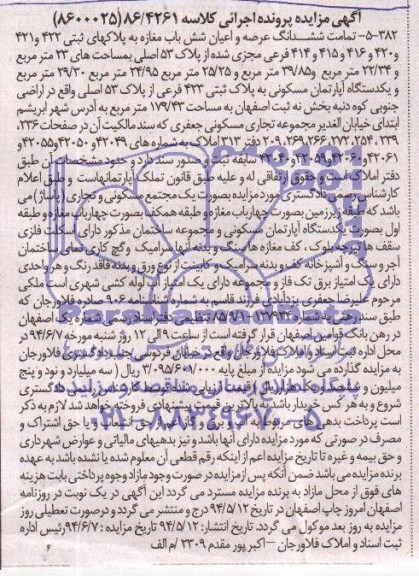 آگهی مزایده پرونده اجرائی کلاسه ۸۶/۴۲۶۱ (۸۶۰۰۰۲۵)
۵-۳۸۲- تمامت ششدانگ عرضه و اعیان شش باب مغازه به پلاکهای ثبتی ۴۲۲ و ۴۲۱
و ۴۲۰ و ۴۱۶ و ۴۱۵ و ۴۱۴ فرعی مجزی شده از پلاک ۵۳ اصلی بمساحت های ۲۳ متر مربع
و ۲۲/۳۴ متر مربع و ۳۹/۸۵ متر مربع و ۲۵/۲۵ متر مربع ۲۴/۹۵ متر مربع ۲۹/۳۰ متر مربع
و یکدستگاه آپارتمان مسکونی به پلاک ثبتی ۴۲۳ فرعی از پلاک ۵۳ اصلی واقع در اراضی
جنوبی کوه دنبه بخش نه ثبت اصفهان به مساحت ۱۷۹/۴۳ متر مربع به آدرس شهر ابریشم
ابتدای خیابان الغدیر مجموعه تجاری مسکونی جعفری که سند مالکیت آن در صفحات ۲۳۶،
۲۳۹، ۲۵۴، ۲۷۲، ۲۶۶، ۲۶۹، ۲۰۹ دفتر املاک به شماره های ۴۲۰۴۹ و ۴۲۰۵۰ و ۴۲۰۵۵ و
۴۲۰۶۱ و ۴۲۰۶۰ و ۴۲۰۵۹ و سابقه ثبت و صدور سند دارد و حدود مشخصات آن طبق
دفتر املاک است و حقوق ارتفاقی له و علیه طبق قانون تملک آپارتمانهاست و طبق اعلام
کارشناس رسمی دادگستری مورد مزایده بصورت یک مجتمع مسکونی و تجاری (پاساژ) می
باشد که طبقه زیرزمین بصورت چهارباب مغازه و طبقه همکف بصورت چهارباب مغازه و طبقه
اول بصورت یکدستگاه آپارتمان مسکونی و مجموعه ساختمان مذکور دارای اسکلت فلزی
سقف ها تیرچه بلوک، کف مغازه ها سنگ و بدنه آنها سرامیک و گچ کاری نمای ساختمان
آجر و سنگ و آشپزخانه کف و بدنه سرامیک و کابینت از نوع ورق و بدنه فاقد رنگ و هر واحدی
دارای یک امتیاز برق تک فاز و مجموعه دارای یک امتیاز آب لوله کشی شهری است ملکی
مرحوم علیرضا جعفری یزدآبادی فرزند قاسم به شماره شناسنامه ۹۰۶ صادره فلاورجان که
طبق سند رهنی به شماره ۱۲۷۹۴۴-۸۵/۹/۱ تنظیمی دفتر اسناد رسمی شماره یک اصفهان
در رهن بانک قوامین اصفهان قرار گرفته است از ساعت ۹ الی ۱۲ روز شنبه مورخه ۹۴/۶/۷ در
محل اداره ثبت اسناد و املاک فلاورجان واقع در خیابان فردوسی جنب دادگستری فلاورجان
به مزایده گذارده می شود مزایده از مبلغ پایه ۳/۰۹۵/۶۰۱/۰۰۰ ریال (سه میلیارد و نود و پنج
میلیون و ششصد و یک هزار ریال) قیمت ارزیابی شده توسط کارشناس رسمی دادگستری
شروع و به هر کس خریدار باشد به بالاترین قیمت پیشنهادی فروخته خواهد شد لازم به ذکر
است پرداخت بدهی های مربوط به آب، برق، گاز اعم از حق انشعاب و یا حق اشتراک و
مصرف در صورتی که مورد مزایده دارای آنها باشد و نیز بدهیهای مالیاتی و عوارض شهرداری
و حق بیمه و غیره تا تاریخ مزایده اعم از اینکه رقم قطعی آن معلوم شده یا نشده باشد به عهده
برنده مزایده می باشد ضمن آنکه پس از مزایده در صورت وجود مازاد وجوه پرداختی بابت هزینه
های فوق از محل مازاد به برنده مزایده مسترد می گردد این آگهی در یک نوبت در روزنامه
اصفهان امروز چاپ اصفهان در تاریخ ۹۴/۵/۱۲ درج و منتشر می گردد و درصورت تعطیلی روز
مزایده به روز بعد موکول می گردد. تاریخ انتشار: ۹۴/۵/۱۲ تاریخ مزایده: ۹۴/۶/۷ رئیس اداره
ثبت اسناد و املاک فلاورجان – اکبر پور مقدم ۳۳۰۹ / م الف